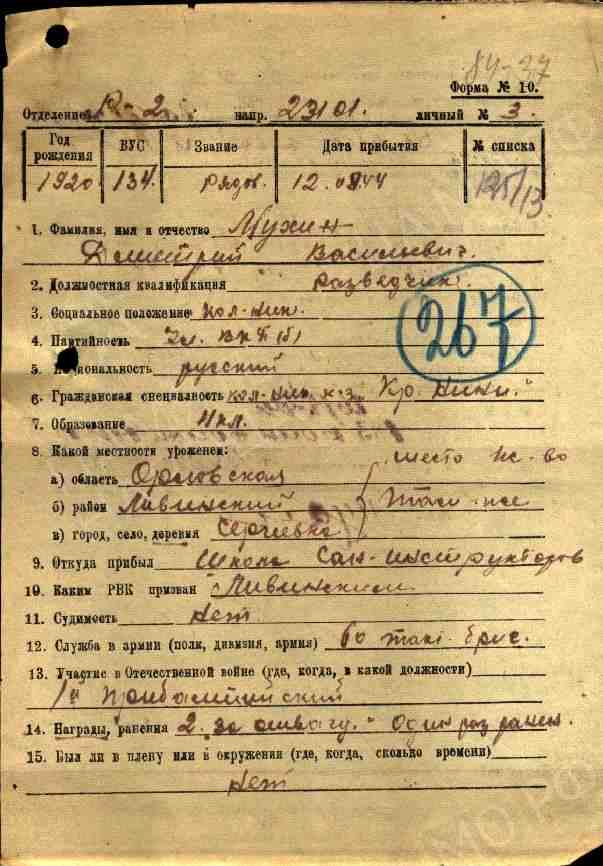 84-27
Форма № 10.
Отделение R-2 напр. 23101. личный № 3.
Год рождения ВУС Звание Дата прибытия № списка
1920 134. рядов. 12.08.44 125/13
1. Фамилия, имя и отчество Мухин
Дмитрий Васильевич.
2. Должностная квалификация разведчик.
3. Социальное положение кол-ник.
4. Партийность Чл. ВКП(б)
267
5. Национальность русский
6. Гражданская специальность кол-ник к-з. "Кр. Нивы."
7. Образование 4 кл.
8. Какой местности уроженец: место жс-во
а) область Орловская
б) район Ливинский
в) город, село, деревня Сергиевка
9. Откуда прибыл Школа Сан-инструкторов
10. Каким РВК призван Ливинским
11. Судимость нет.
12. Служба в армии (полк, дивизия, армия) 60 танк. бриг.
13. Участие в Отечественной войне (где, когда, в какой должности)
1й Прибалтийский
14. Награды, ранения 2. за отвагу." Один раз ранен.
15. Был ли в плену или в окружении (где, когда, сколько времени)
нет